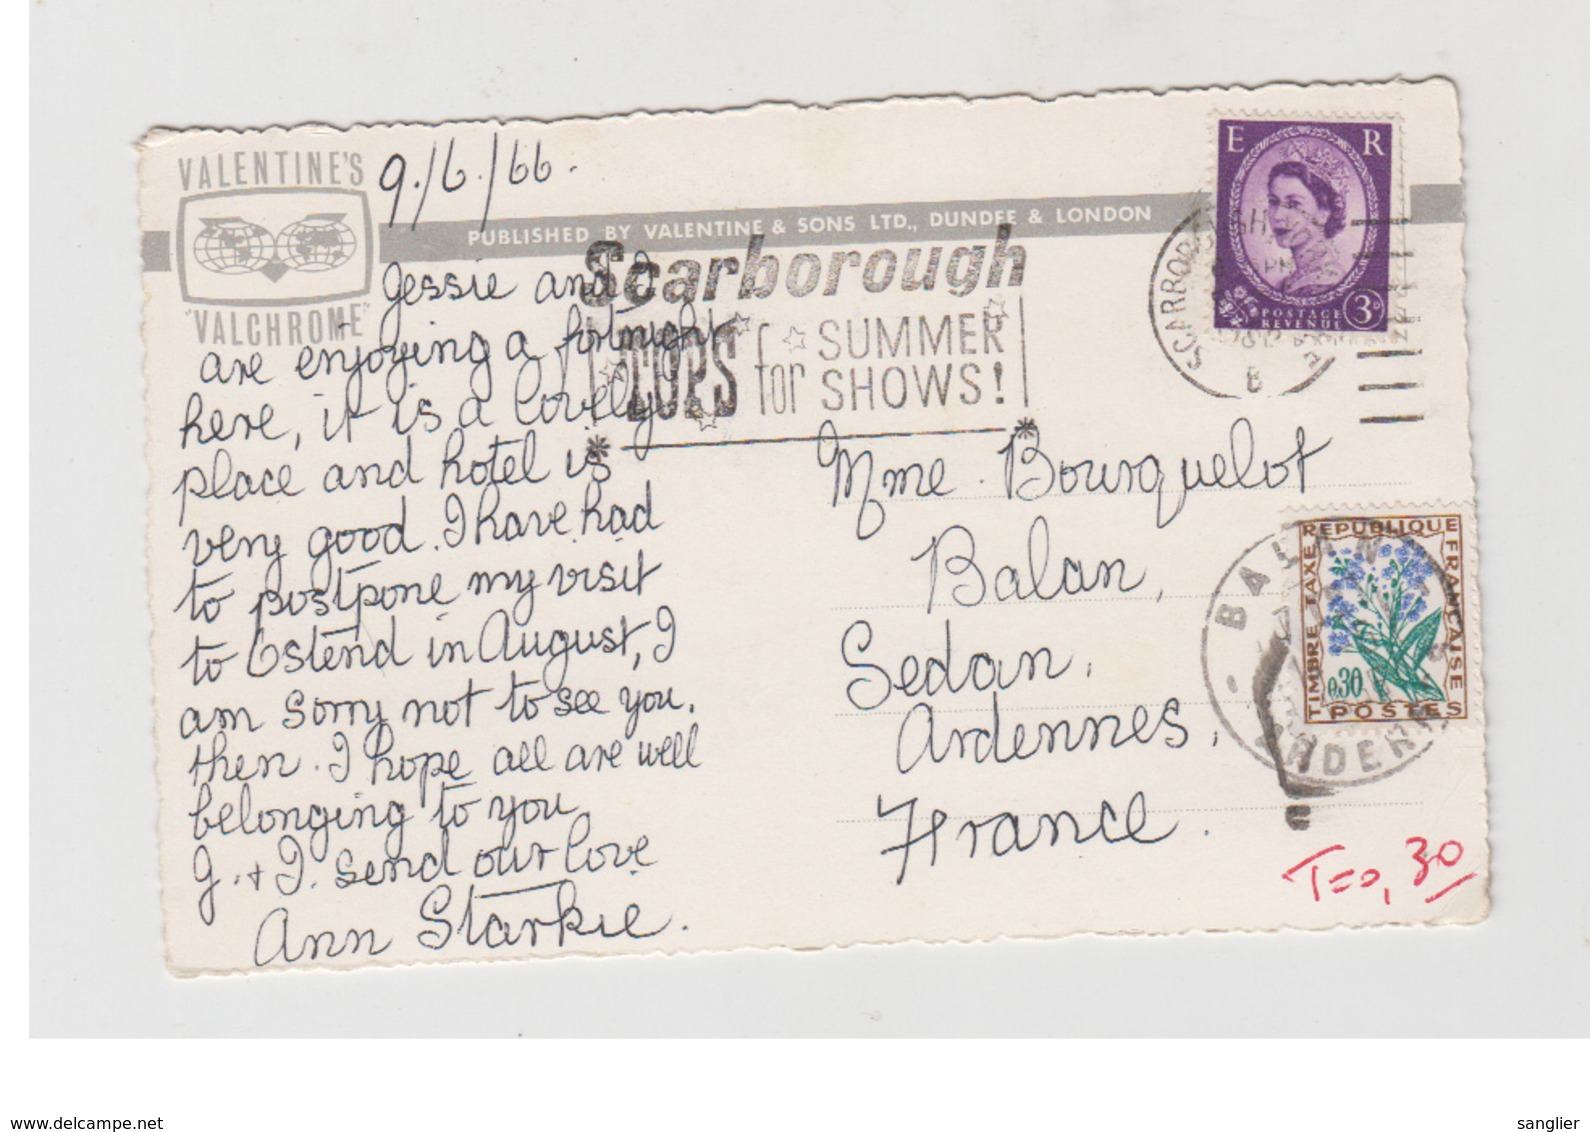 VALENTINE'S
"VALCHROME"
9/6/66.
PUBLISHED BY VALENTINE & SONS LTD., DUNDEE & LONDON
Jessie and I
are enjoying a fortnight
here, it is a lovely
place and hotel is
very good. I have had
to postpone my visit
to Ostend in August, I
am sorry not to see you.
then. I hope all are well
belonging to you
J. + I. send our love
Ann Starkie.
Scarborough
TOPS for SUMMER
SHOWS!
SCARBOROUGH
B
E R
POSTAGE
REVENUE
3D
Mme. Bourquelot
Balan,
Sedan,
Ardennes,
France.
REPUBLIQUE
FRANCAISE
TIMBRE TAXE
0,30
POSTES
BALAN
ARDENNES
T=0,30
www.delcampe.net
sanglier